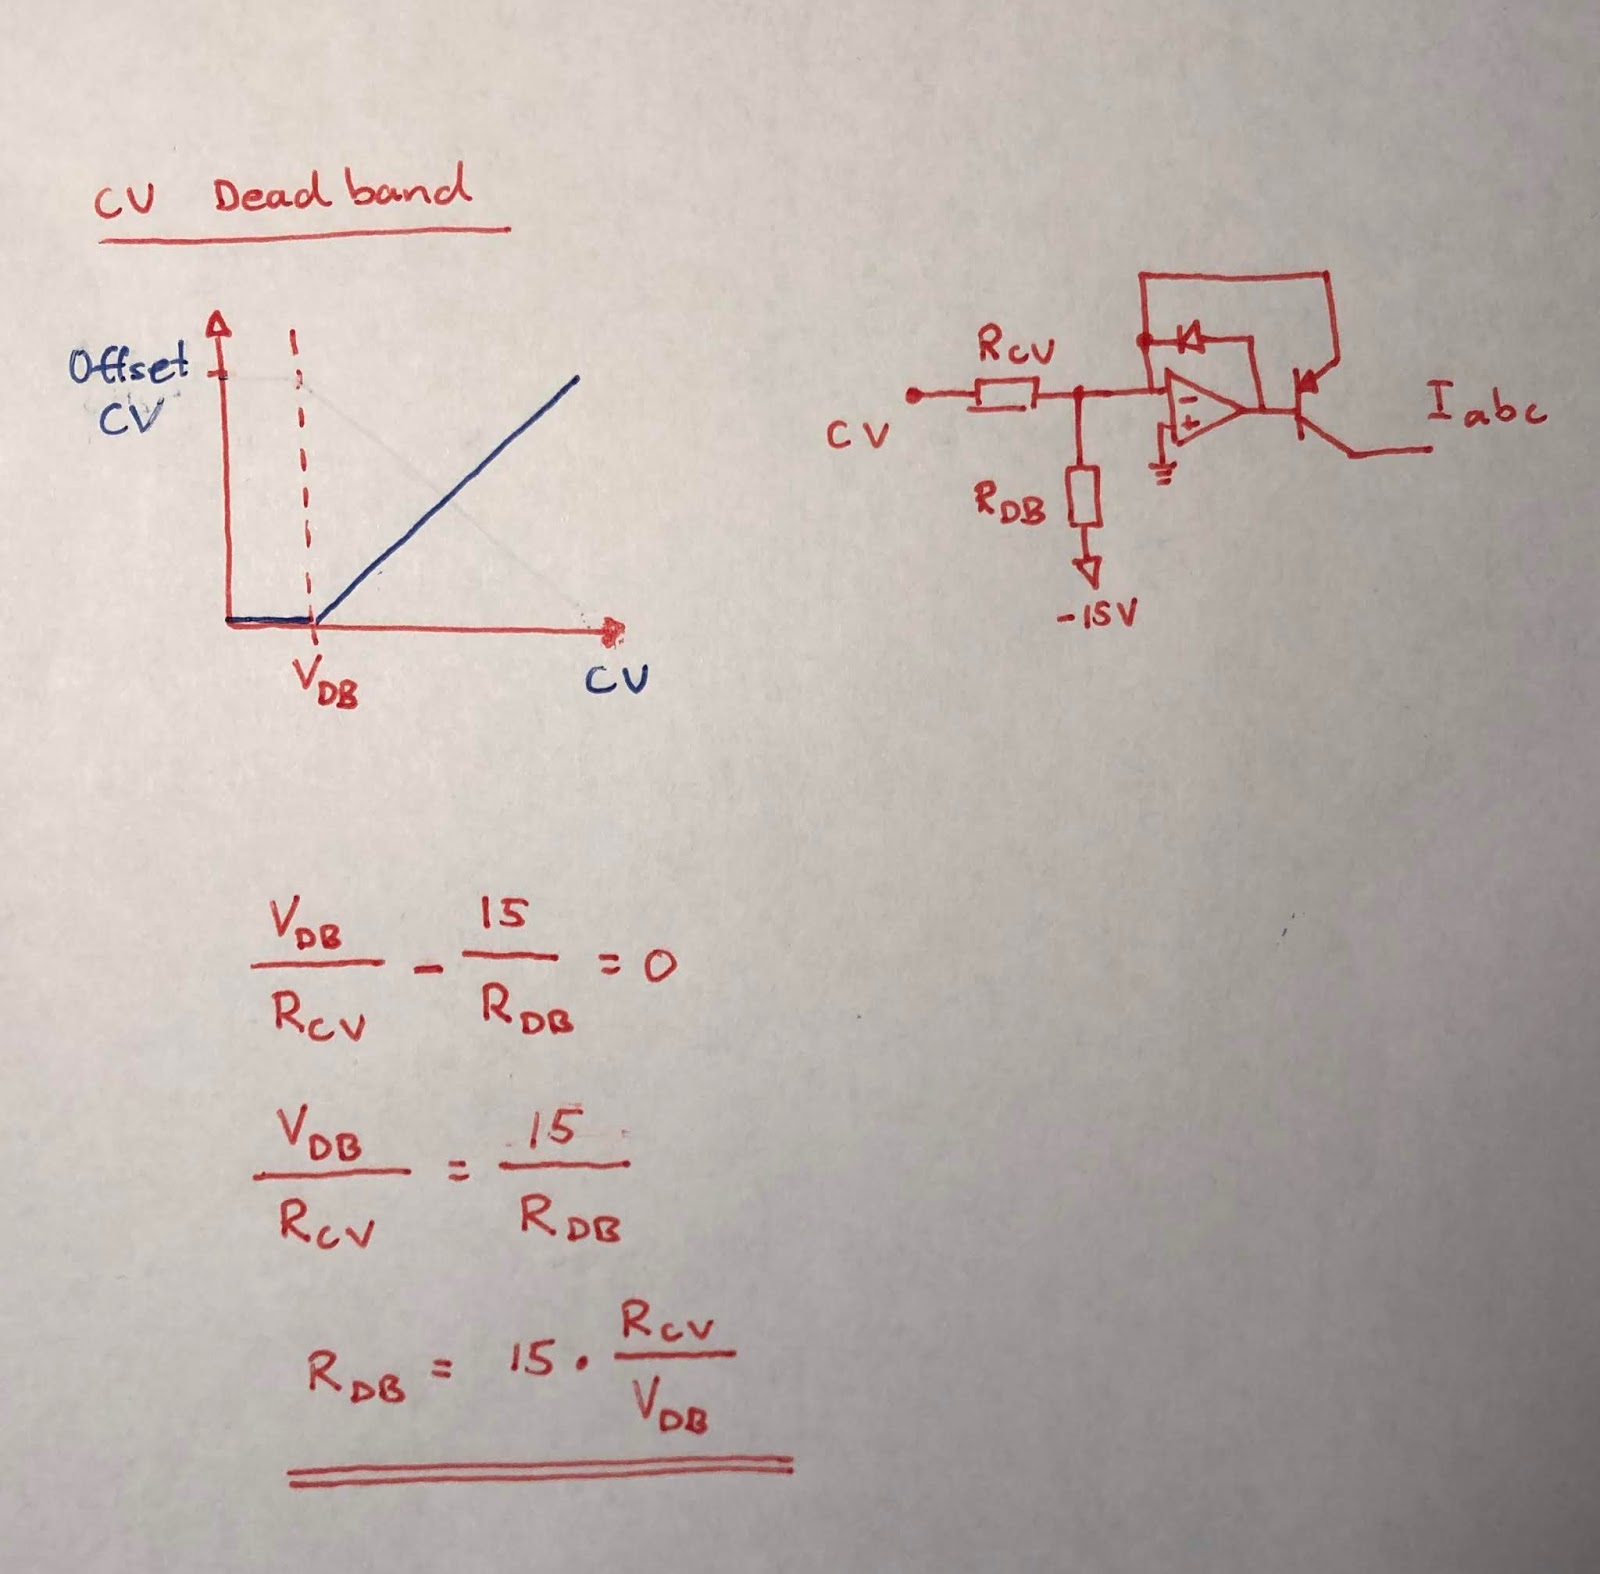 CV Dead band
Offset
CV
V_DB
CV
R_CV
CV
R_DB
-15V
- +
I_abc
V_DB / R_CV - 15 / R_DB = 0
V_DB / R_CV = 15 / R_DB
R_DB = 15 · R_CV / V_DB